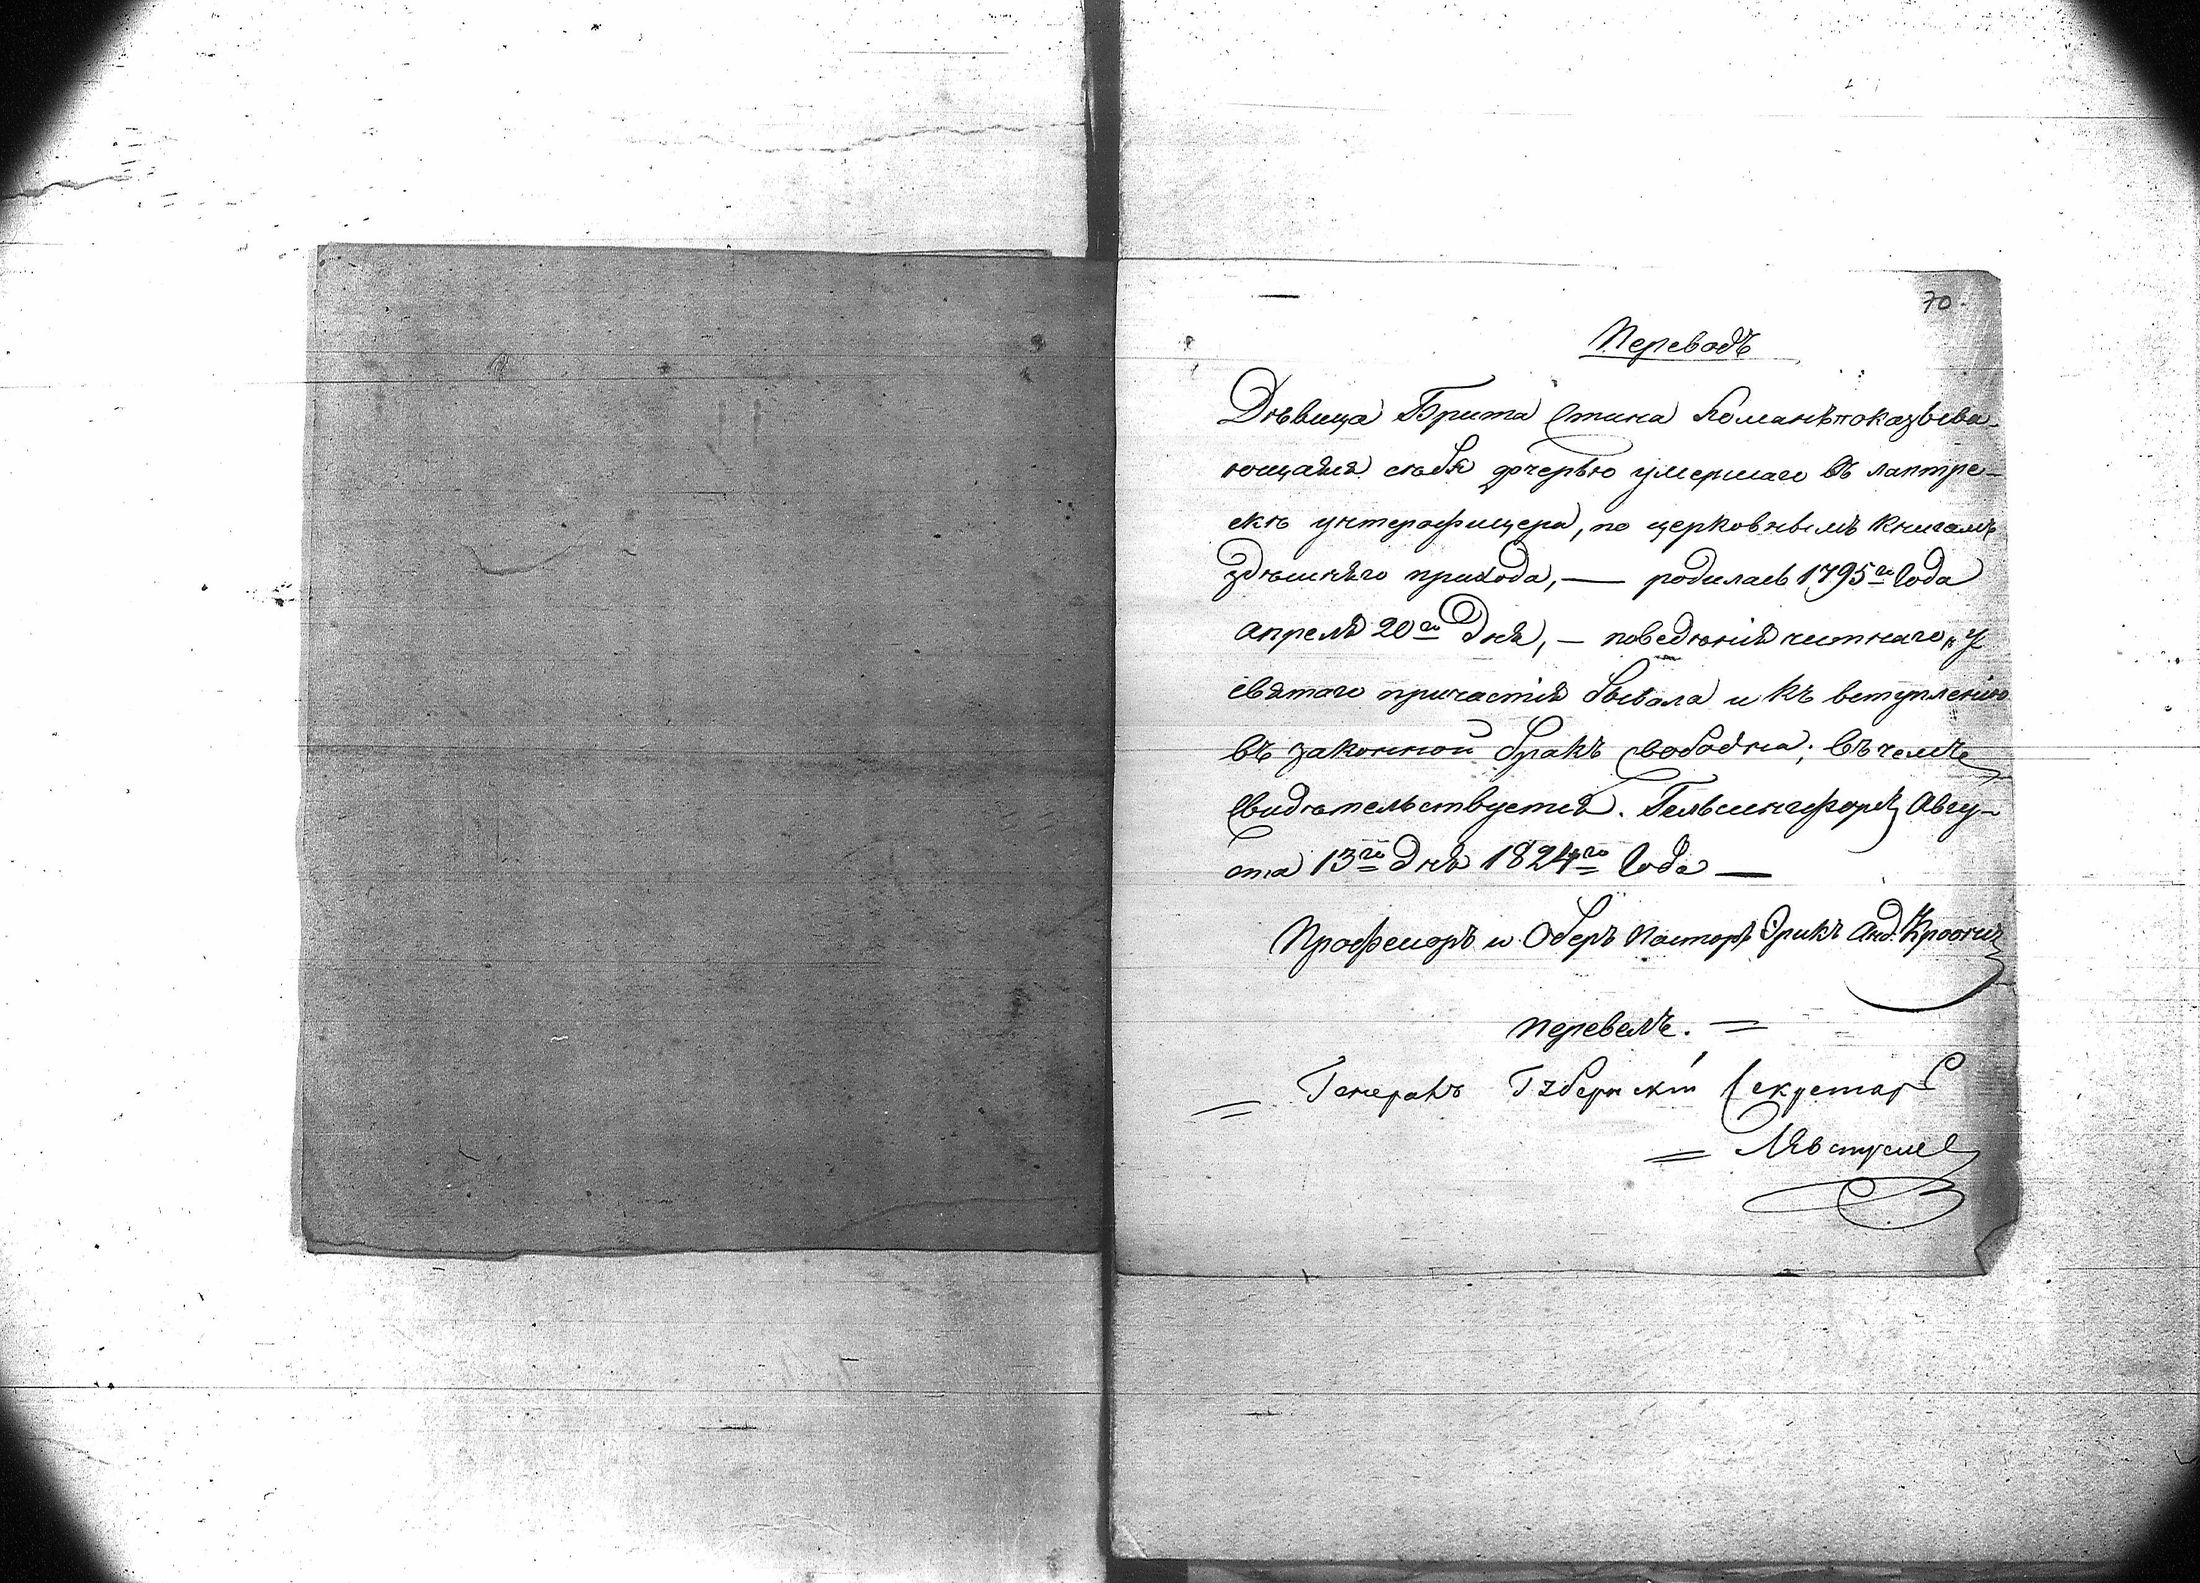 70.
Переводъ
Дѣвица Брита Стина Команъ показыва-
ющаяся себя дочерью умершаго въ лаптре-
скѣ унтерофицера, по церковнымъ книгамъ
здѣшняго прихода, — родилась 1795го Года
Апреля 20го Дня, — поведѣнія честнаго, у
святаго причастія бывала и къ вступленію
въ законной бракъ свободна; въ чемъ
Свидѣтельствуется. Гельсингфорсъ Авгу-
ста 13го Дня 1824го Года —
Профессоръ и Оберъ Пасторъ Эрикъ Анд.
перевелъ. =
= Генералъ Губернскій Секретарь
=